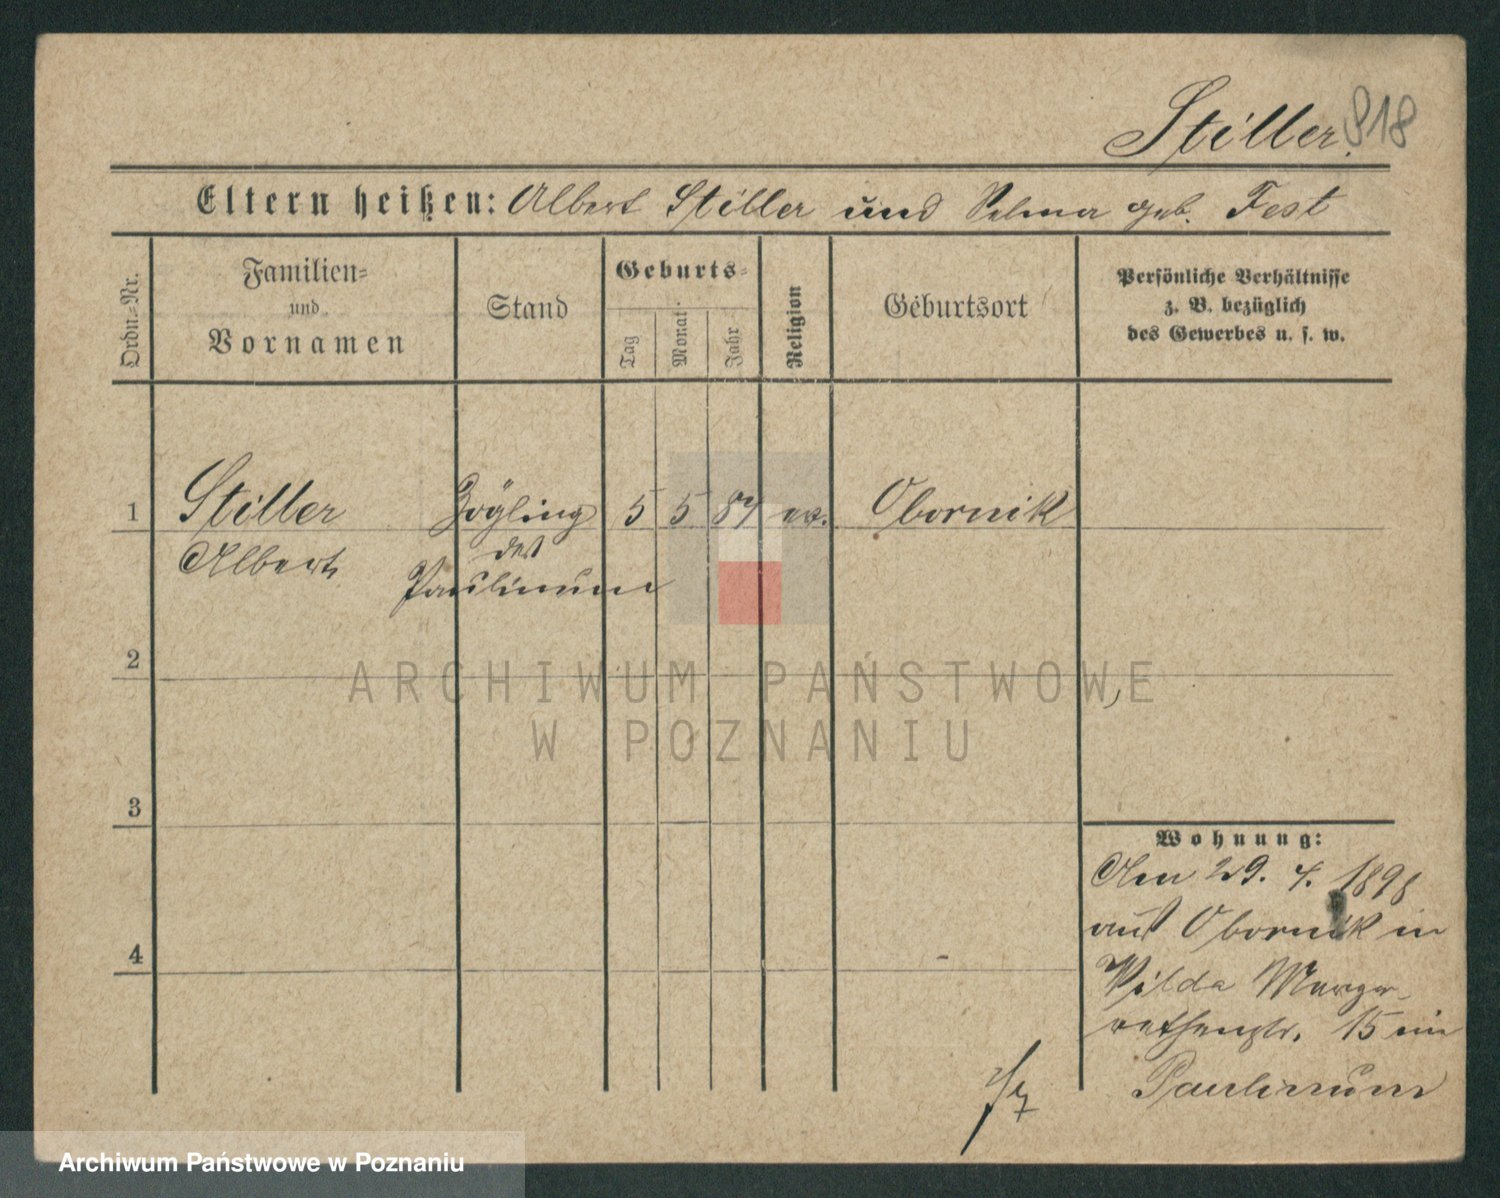 Stiller. 818
Eltern heißen: Albert Stiller und Selma geb. Fest
Ordn.=Nr.
Familien=
und
Vornamen
Stand
Geburts=
Tag
Monat
Jahr
Religion
Geburtsort
Persönliche Verhältnisse
z. B. bezüglich
des Gewerbes u. s. w.
1 Stiller Zögling 5 5 87 ev. Obornik
Albert des
Paulinum
2
ARCHIWUM PAŃSTWOWE
W POZNANIU
3
Wohnung:
Am 29. 4. 1898
aus Obornik in
4
Wilda Marga-
rethenstr. 15 im
Paulinum
Archiwum Państwowe w Poznaniu